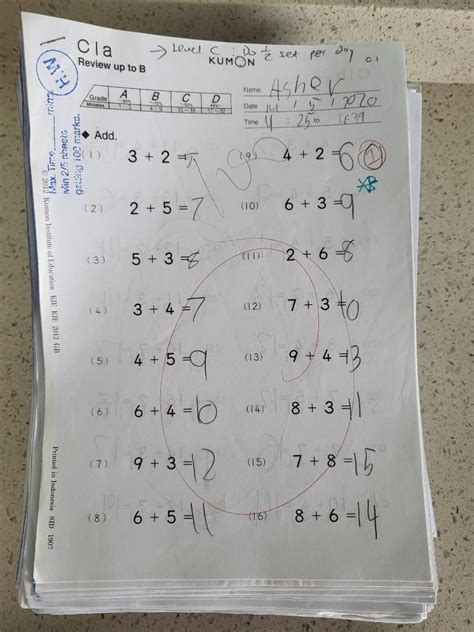 C1a → Level C : Do ½ set per day
Review up to B KUMON C 1
M.H
Max. Time mins
Min 2/5 sheets
getting 100 marks.
Grade A B C D
Name Asher
Date 14 / 5 / 2020
Time 4 : 25 to 4:39
◆ Add.
(1) 3 + 2 = 5 (9) 4 + 2 = 6
(2) 2 + 5 = 7 (10) 6 + 3 = 9
(3) 5 + 3 = 8 (11) 2 + 6 = 8
(4) 3 + 4 = 7 (12) 7 + 3 = 10
(5) 4 + 5 = 9 (13) 9 + 4 = 13
(6) 6 + 4 = 10 (14) 8 + 3 = 11
(7) 9 + 3 = 12 (15) 7 + 8 = 15
(8) 6 + 5 = 11 (16) 8 + 6 = 14
© 2012 Kumon Institute of Education KIE KIE 2012 GB
Printed in Indonesia SID 1907